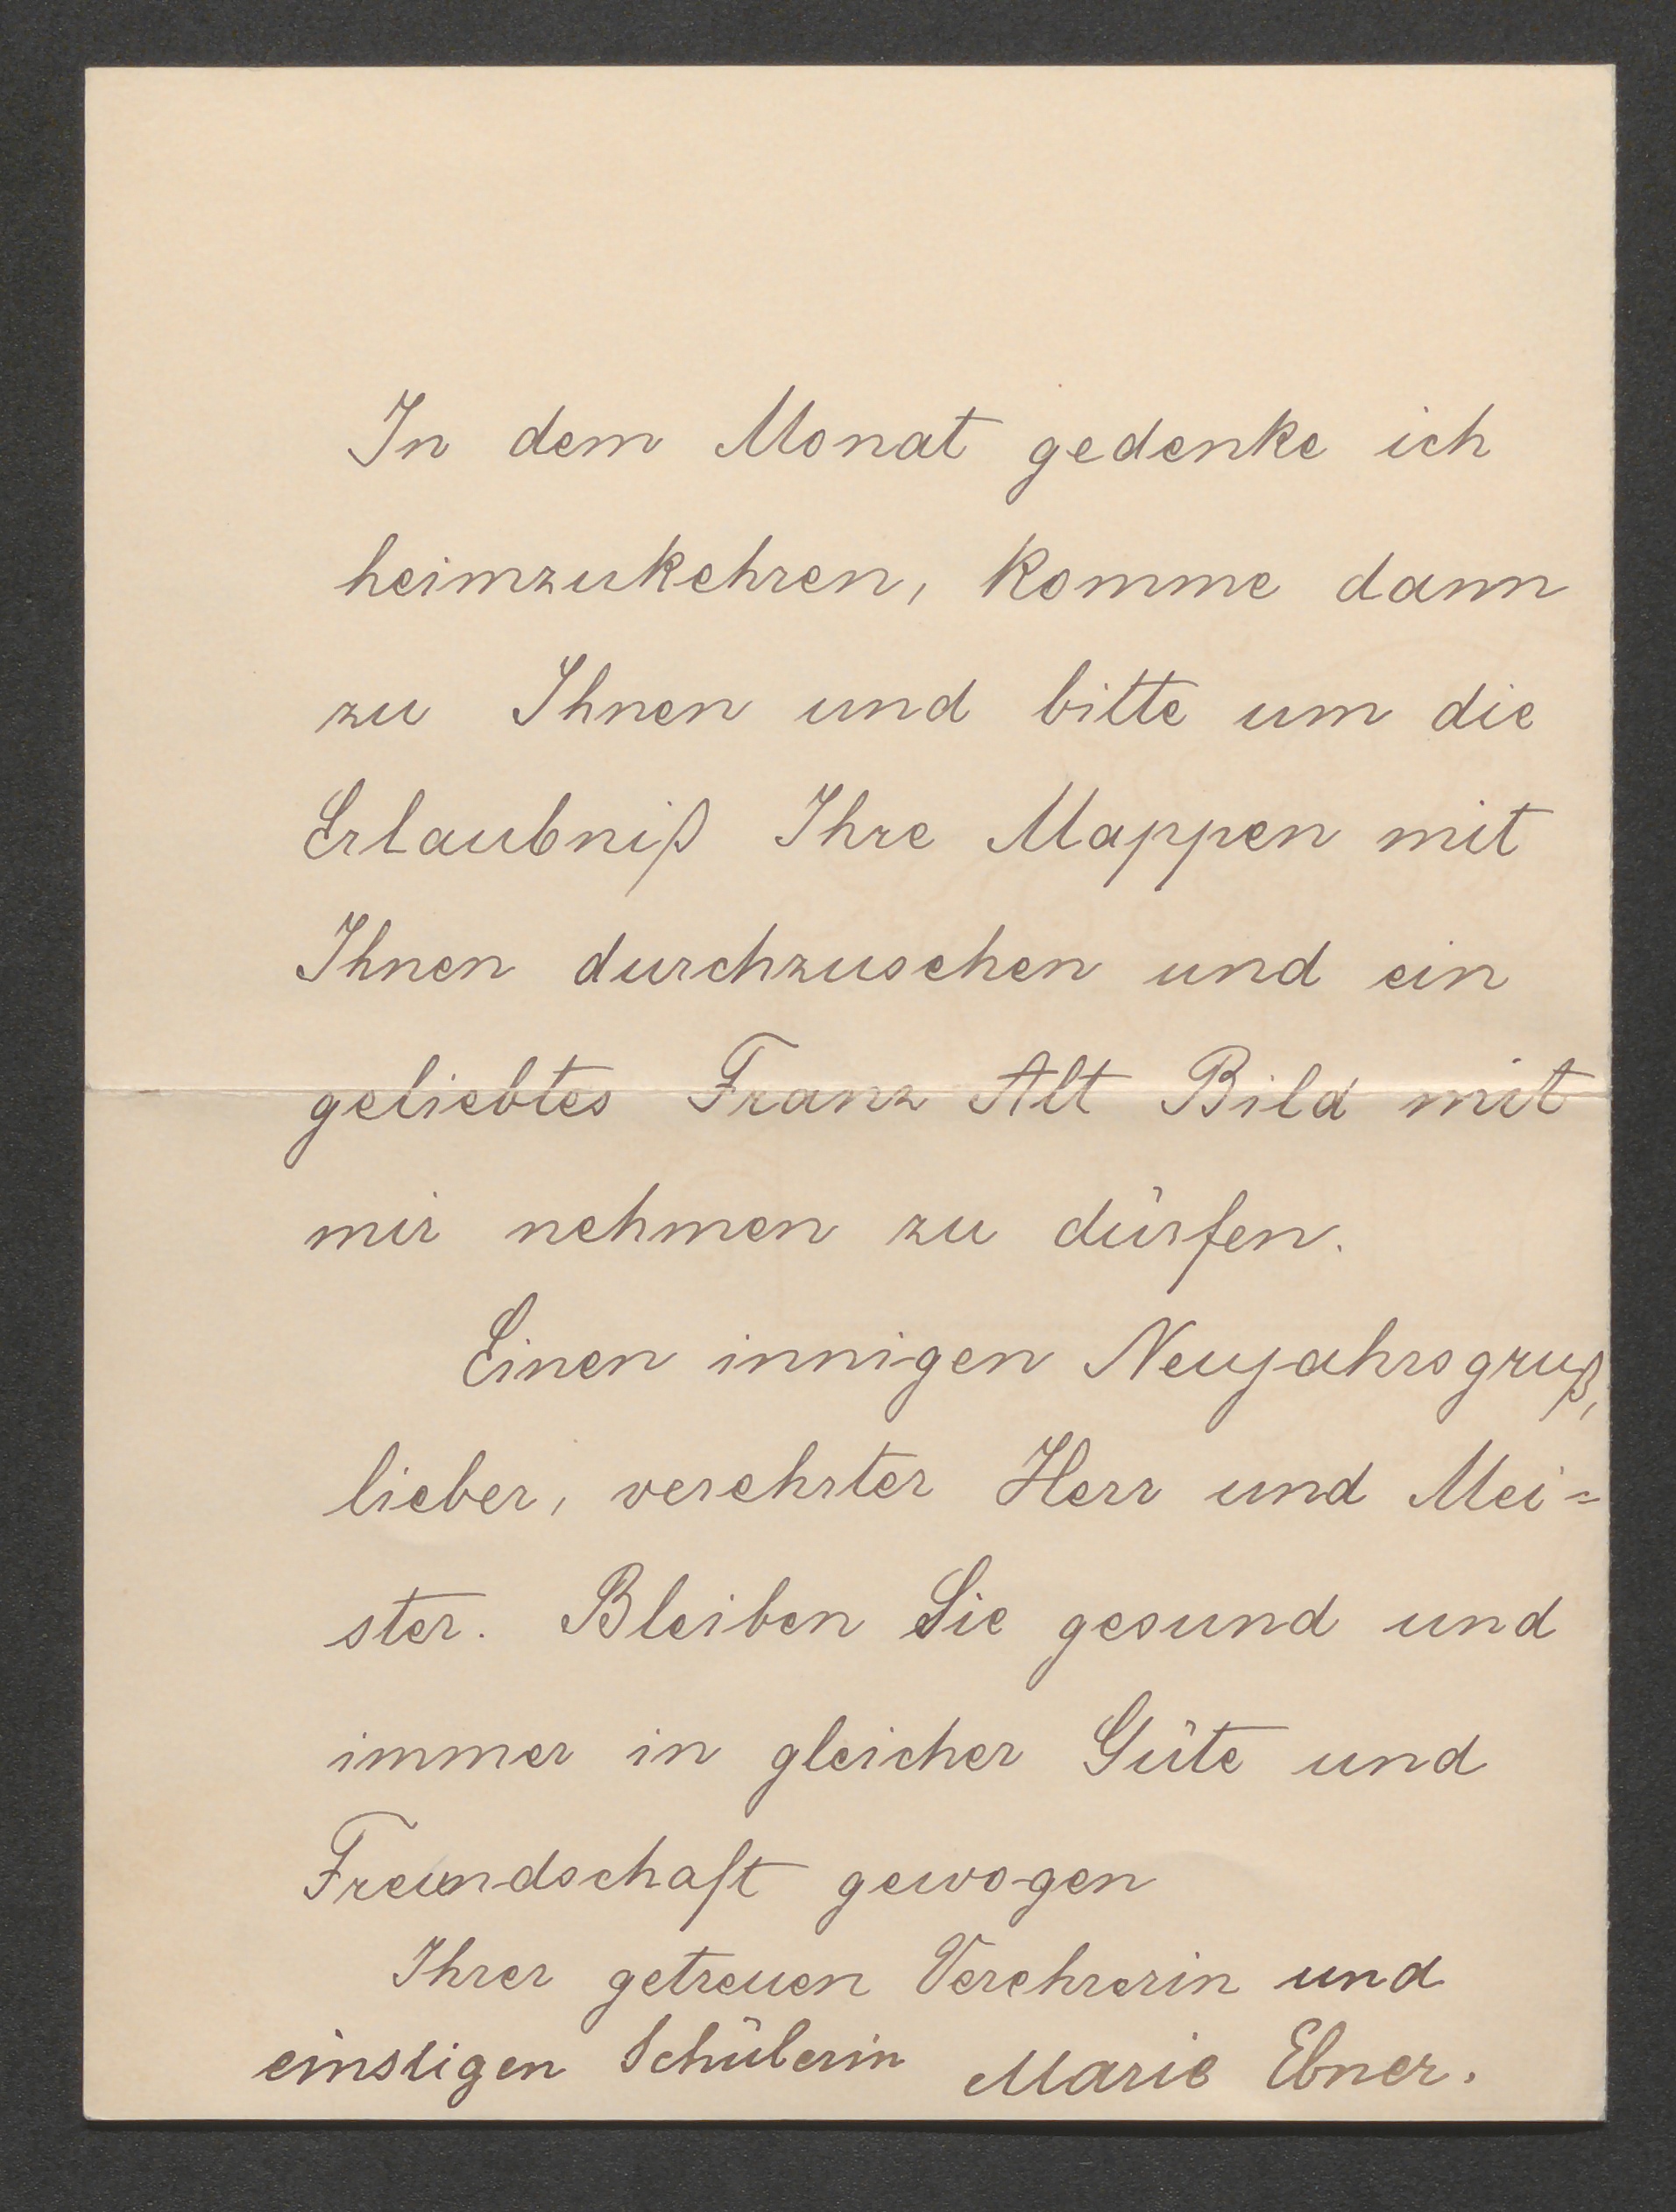 In dem Monat gedenke ich
heimzukehren, komme dann
zu Ihnen und bitte um die
Erlaubniß Ihre Mappen mit
Ihnen durchzusehen und ein
geliebtes Franz Alt Bild mit
mir nehmen zu dürfen.
Einen innigen Neujahrsgruß,
lieber, verehrter Herr und Mei=
ster. Bleiben Sie gesund und
immer in gleicher Güte und
Freundschaft gewogen
Ihrer getreuen Verehrerin und
einstigen Schülerin Marie Ebner.